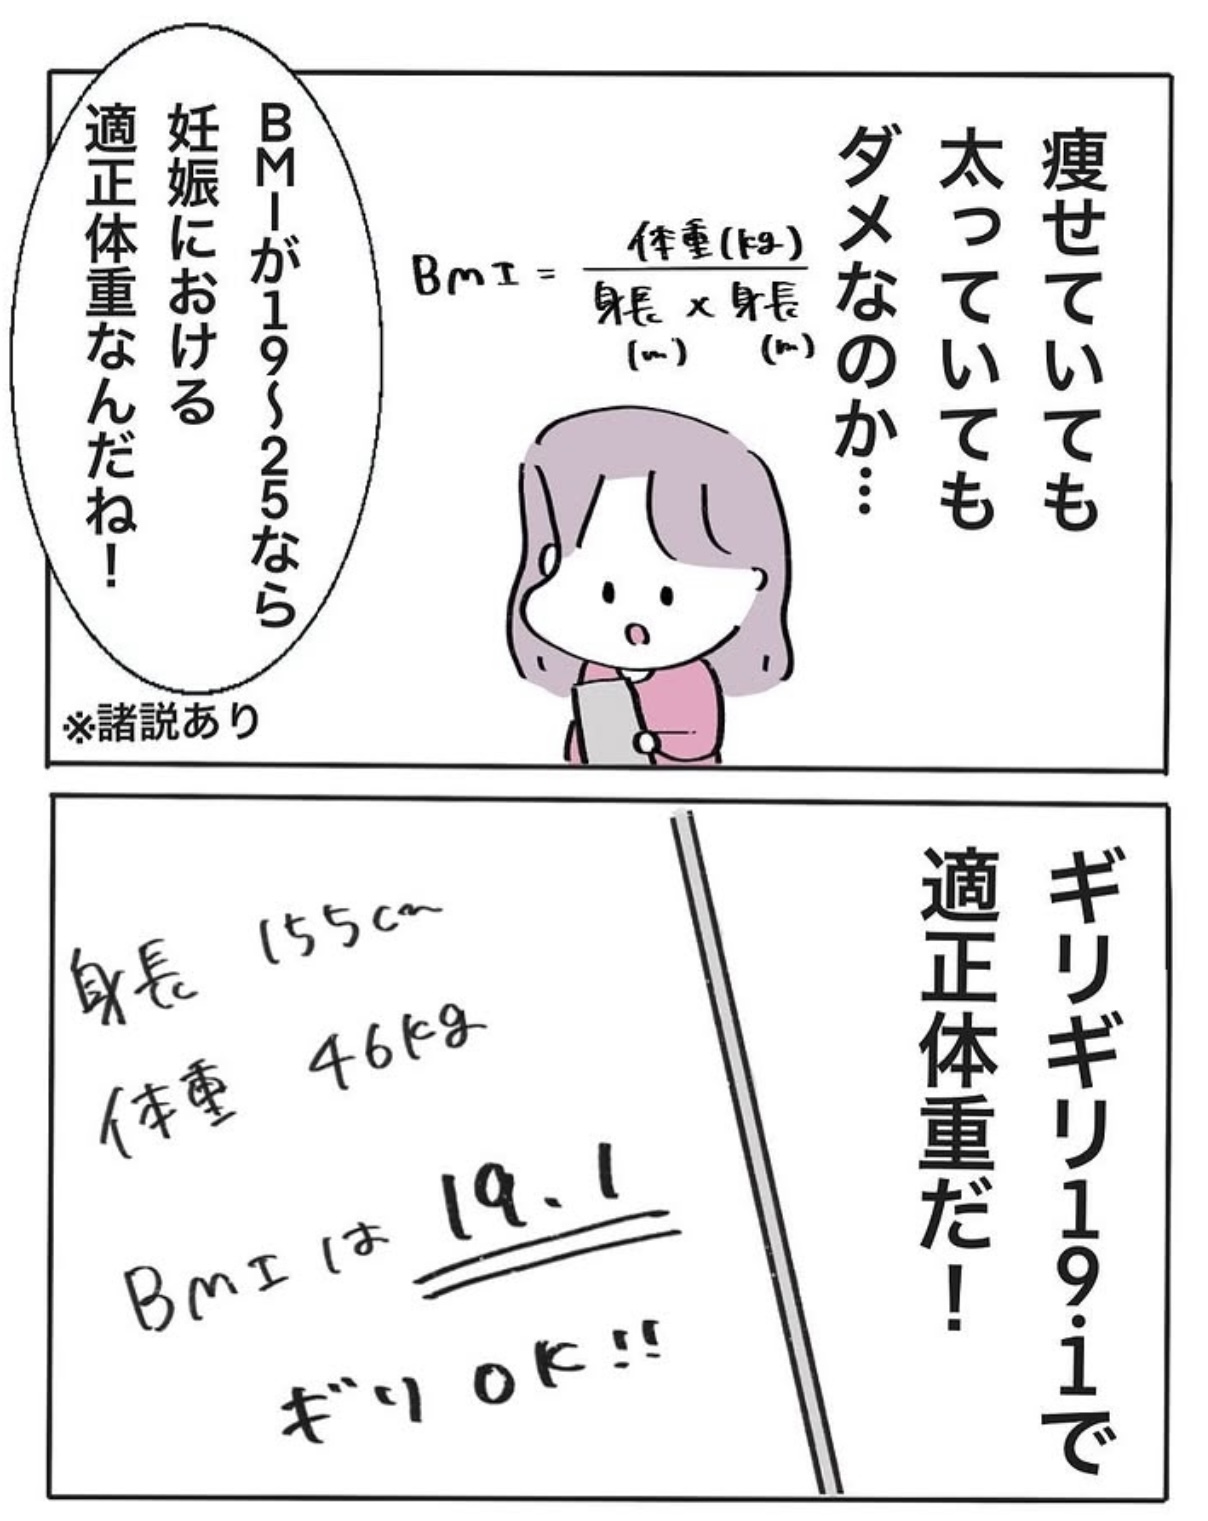 痩せていても
太っていても
ダメなのか…
BMI = 体重(kg)
身長 × 身長
(m) (m)
BMIが19〜25なら
妊娠における
適正体重なんだね！
※諸説あり
ギリギリ19.1で
適正体重だ！
身長 155cm
体重 46kg
BMIは 19.1
ギリ OK!!